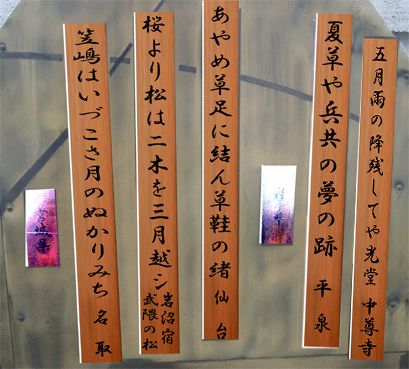 五月雨の降残してや光堂 中尊寺
夏草や兵共の夢の跡 平泉
あやめ草足に結ん草鞋の緒 仙台
桜より松は二木を三月越シ 岩沼宿
武隈の松
笠嶋はいづこさ月のぬかりみち 名取